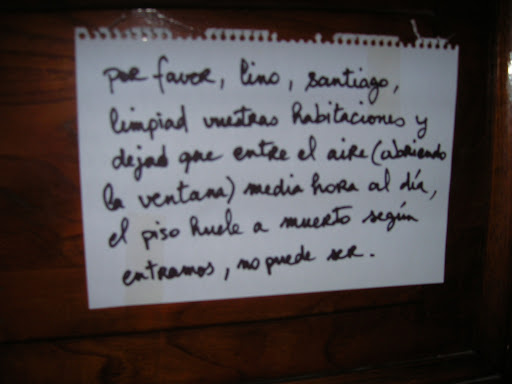 por favor, lino, santiago,
limpiad vuestras habitaciones y
dejad que entre el aire (abriendo
la ventana) media hora al día,
el piso huele a muerto según
entramos, no puede ser.